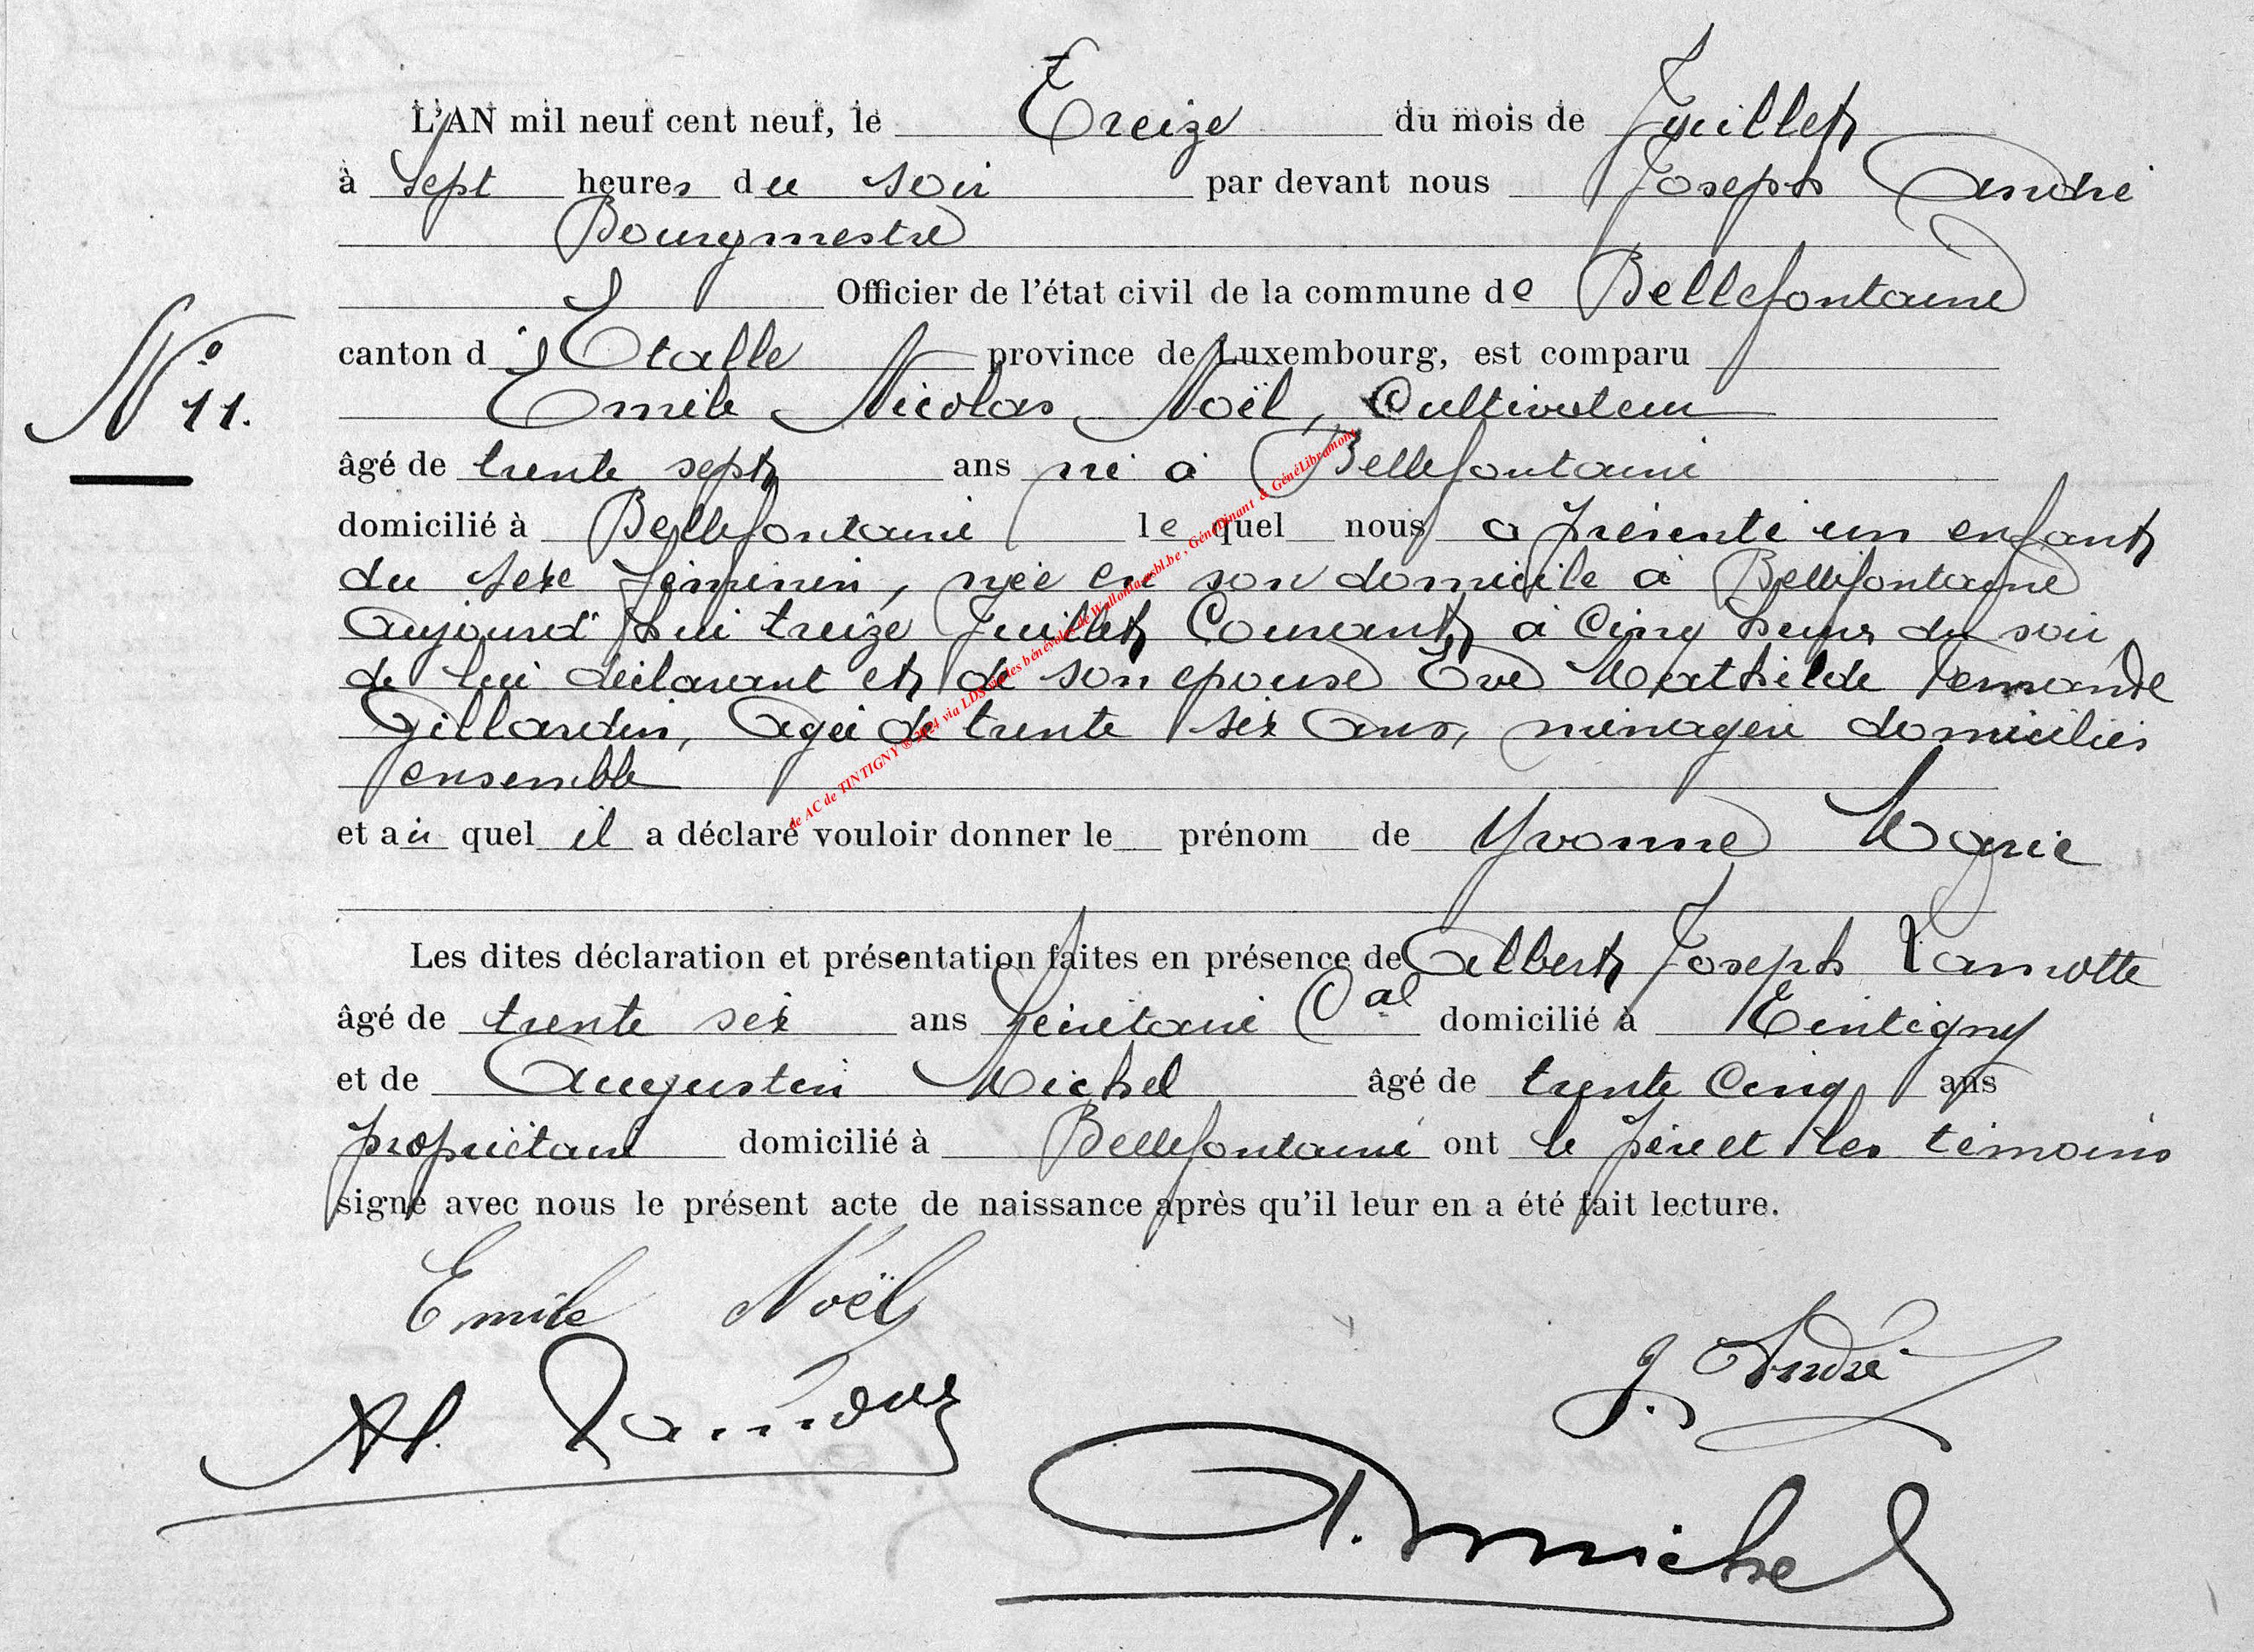 L'AN mil neuf cent neuf, le Treize du mois de Juillet
à sept heures du soir par devant nous Joseph André
Bourgmestre
Officier de l'état civil de la commune de Bellefontaine
canton d'Etalle province de Luxembourg, est comparu
N° 11.
Emile Nicolas Noël, Cultivateur
âgé de trente sept ans né à Bellefontaine
domicilié à Bellefontaine lequel nous a présenté un enfant
du sexe féminin, née en son domicile à Bellefontaine
aujourd'hui treize Juillet Courant à Cinq heures du soir
de lui déclarant et de son epouse Eve Mathilde
Gillardin, agée de trente six ans, ménagère domiciliés
ensemble
et au quel il a déclaré vouloir donner le prénom de Yvonne Marie
Les dites déclaration et présentation faites en présence de Albert Joseph Lamotte
âgé de trente six ans Secrétaire Cal domicilié à Tintigny
et de Augustin Michel âgé de trente Cinq ans
propriétaire domicilié à Bellefontaine ont le père et les témoins
signé avec nous le présent acte de naissance après qu'il leur en a été fait lecture.
Emile Noël
J. André
Al.
A. Michel
de AC de TINTIGNY © 2024 via LDS par les bénévoles de Wallonia-asbl.be, GénéDinant & GénéLibramont